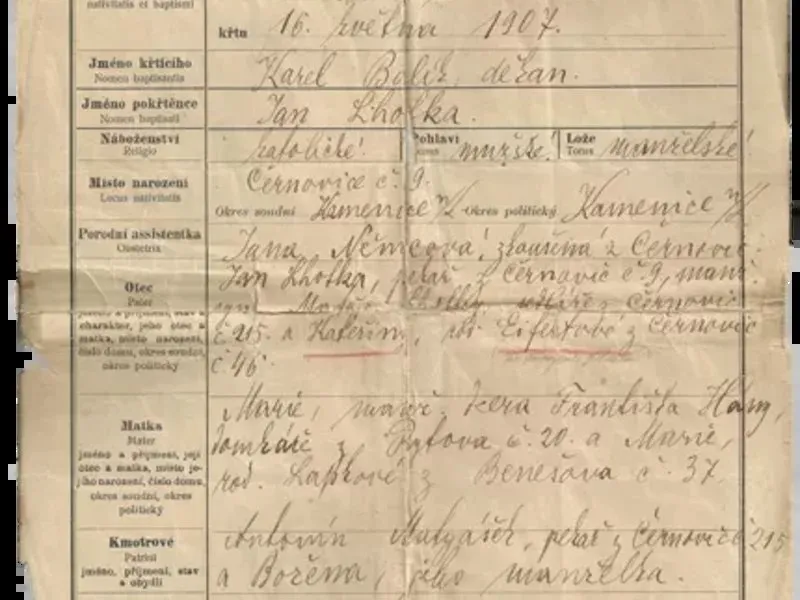 nativitatis et baptismi
křtu 16. května 1907.
Jméno křtícího
Nomen baptisantis
Karel Bolík, děkan.
Jméno pokřtěnce
Nomen baptisati
Jan Lhotka.
Náboženství
Religio
katolické.
Pohlaví
Sexus
mužské.
Lože
Torus
manželské
Místo narození
Locus nativitatis
Černovice č. 9.
Okres soudní Kamenice n/L Okres politický Kamenice n/L
Porodní assistentka
Obstetrix
Jana Němcová, zkoušená z Černovic.
Otec
Pater
jméno a příjmení, stav a
charakter, jeho otec a
matka, místo narození,
číslo domu, okres soudní,
okres politický
Jan Lhotka, pekař z Černovic č. 9, manž.
syn Lhotky z Černovic
č. 215. a Kateřiny, roz. Eifertové z Černovic
č. 46.
Matka
Mater
jméno a příjmení, její
otec a matka, místo je-
jího narození, číslo domu,
okres soudní, okres
politický
Marie, manž. dcera Františka
domkáře z Rytova č. 20. a Marie,
roz. Lapkové z Benešova č. 37
Kmotrové
Patrini
jméno, příjmení, stav
a obydlí
Antonín pekař z Černovic č 215
a Božena, jeho manželka.